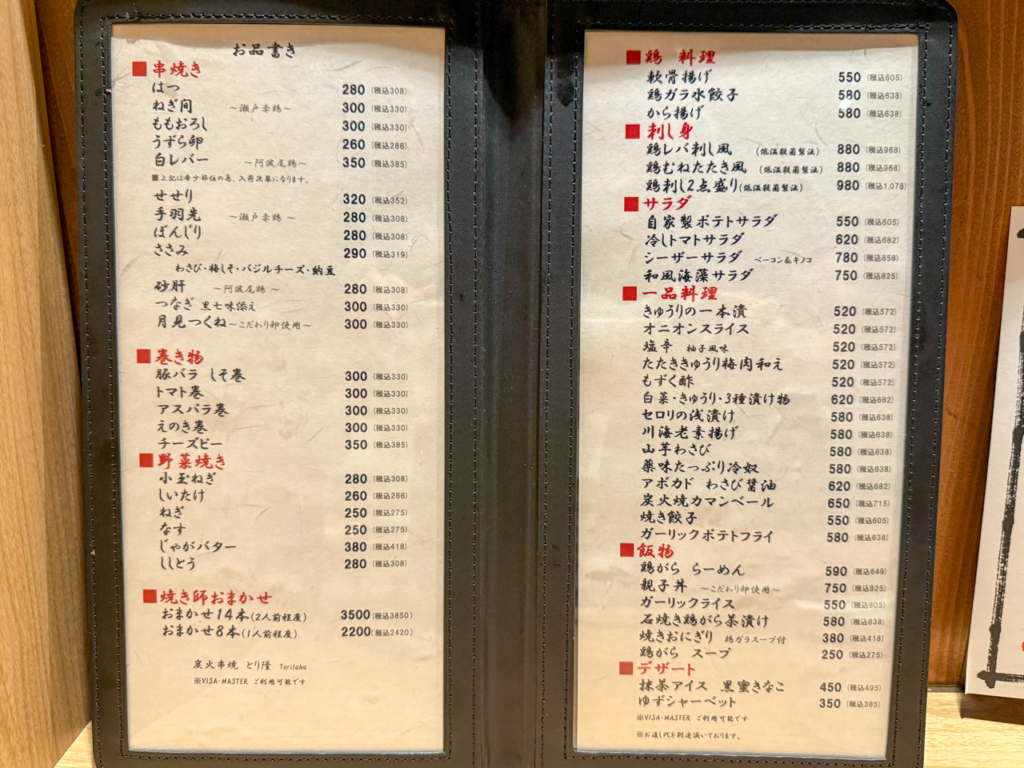 お品書き
■串焼き
はつ 280 (税込308)
ねぎ間 ～瀬戸赤鶏～ 300 (税込330)
ももおろし 300 (税込330)
うずら卵 260 (税込286)
白レバー ～阿波尾鶏～ 350 (税込385)
■上記は希少部位の為、入荷次第になります。
せせり 320 (税込352)
手羽先 ～瀬戸赤鶏～ 280 (税込308)
ぼんじり 280 (税込308)
ささみ 290 (税込319)
わさび・梅しそ・バジルチーズ・納豆
砂肝 ～阿波尾鶏～ 280 (税込308)
つなぎ 黒七味添え 300 (税込330)
月見つくね～こだわり卵使用～ 300 (税込330)
■巻き物
豚バラ しそ巻 300 (税込330)
トマト巻 300 (税込330)
アスパラ巻 300 (税込330)
えのき巻 300 (税込330)
チーズピー 350 (税込385)
■野菜焼き
小玉ねぎ 280 (税込308)
しいたけ 260 (税込286)
ねぎ 250 (税込275)
なす 250 (税込275)
じゃがバター 380 (税込418)
ししとう 280 (税込308)
■焼き師おまかせ
おまかせ14本(2人前程度) 3500(税込3850)
おまかせ8本(1人前程度) 2200(税込2420)
炭火串焼 とり隆 Toritaka
※VISA・MASTER ご利用可能です
■鶏 料理
軟骨揚げ 550 (税込605)
鶏ガラ水餃子 580 (税込638)
から揚げ 580 (税込638)
■刺し身
鶏レバ刺し風 (低温殺菌製法) 880 (税込968)
鶏むねたたき風 (低温殺菌製法) 880 (税込968)
鶏刺し2点盛り(低温殺菌製法) 980 (税込1.078)
■サラダ
自家製ポテトサラダ 550 (税込605)
冷しトマトサラダ 620 (税込682)
シーザーサラダ ベーコン&キノコ 780 (税込858)
和風海藻サラダ 750 (税込825)
■一品料理
きゅうりの一本漬 520 (税込572)
オニオンスライス 520 (税込572)
塩辛 柚子風味 520 (税込572)
たたききゅうり梅肉和え 520 (税込572)
もずく酢 520 (税込572)
白菜・きゅうり・3種漬け物 620 (税込682)
セロリの浅漬け 580 (税込638)
川海老素揚げ 580 (税込638)
山芋わさび 580 (税込638)
薬味たっぷり冷奴 580 (税込638)
アボカド わさび醤油 620 (税込682)
炭火焼カマンベール 650 (税込715)
焼き餃子 550 (税込605)
ガーリックポテトフライ 580 (税込638)
■飯物
鶏がら らーめん 590 (税込649)
親子丼 ～こだわり卵使用～ 750 (税込825)
ガーリックライス 550 (税込605)
石焼き鶏がら茶漬け 580 (税込638)
焼きおにぎり 鶏ガラスープ付 380 (税込418)
鶏がら スープ 250 (税込275)
■デザート
抹茶アイス 黒蜜きなこ 450 (税込495)
ゆずシャーベット 350 (税込385)
※VISA・MASTER ご利用可能です
※お通し代を別途頂いております。